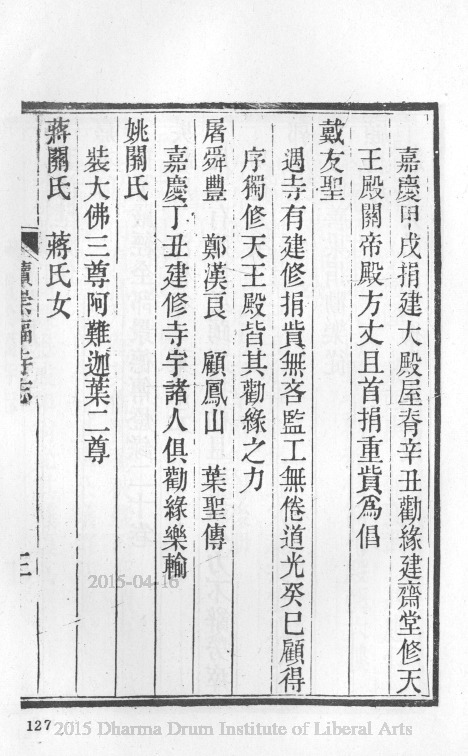 嘉慶甲戌捐建大殿屋脊辛丑勸緣建齋堂修天
王殿關帝殿方丈且首捐重貲爲倡
戴友聖
遇寺有建修捐貲無吝監工無倦道光癸巳顧得
序獨修天王殿皆其勸緣之力
屠舜豐 鄭漢良 顧鳳山 葉聖傳
嘉慶丁丑建修寺宇諸人俱勸緣樂輸
姚關氏
裝大佛三尊阿難迦葉二尊
蔣關氏 蔣氏女
續崇福寺志 三
2015-04-16
127
2015 Dharma Drum Institute of Liberal Arts